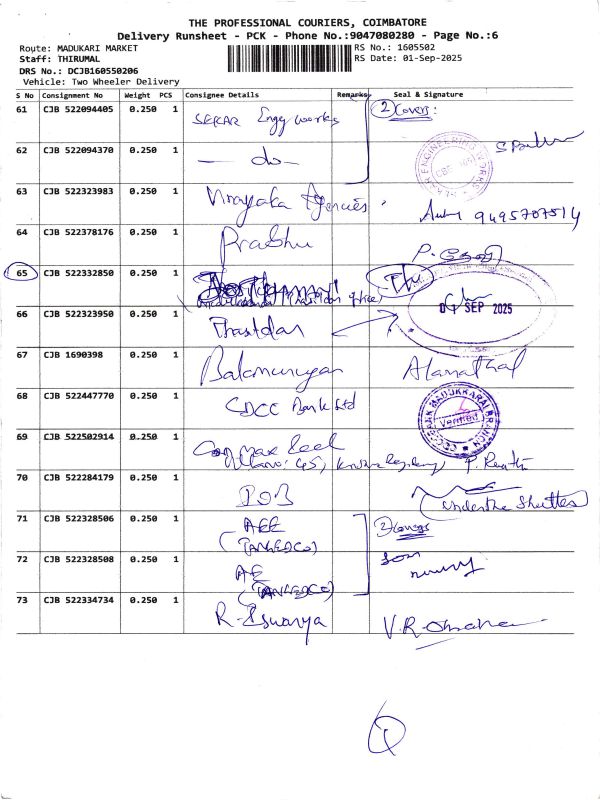 THE PROFESSIONAL COURIERS, COIMBATORE
Delivery Runsheet - PCK - Phone No.:9047080280 - Page No.:6
Route: MADUKARI MARKET
Staff: THIRUMAL
DRS No.: DCJB160550206
Vehicle: Two Wheeler Delivery
RS No.: 1605502
RS Date: 01-Sep-2025
S No Consignment No Weight PCS Consignee Details Remarks Seal & Signature
61 CJB 522094405 0.250 1 SEKAR Engg works 2 Covers:
62 CJB 522094370 0.250 1 — do —
63 CJB 522323983 0.250 1 Vinayaka Agencies 9495707514
64 CJB 522378176 0.250 1 Prabhu
65 CJB 522332850 0.250 1
SEP 2025
66 CJB 522323950 0.250 1
67 CJB 1690398 0.250 1 Balamurugan
68 CJB 522447770 0.250 1 CDCC Bank Ltd
Verified
69 CJB 522502914 0.250 1
70 CJB 522284179 0.250 1 IOB
Under the Shutter
71 CJB 522328506 0.250 1 AEE
(TANGEDCO)
2 Covers
72 CJB 522328508 0.250 1 AE
(TANGEDCO)
73 CJB 522334734 0.250 1 R-Eswarya